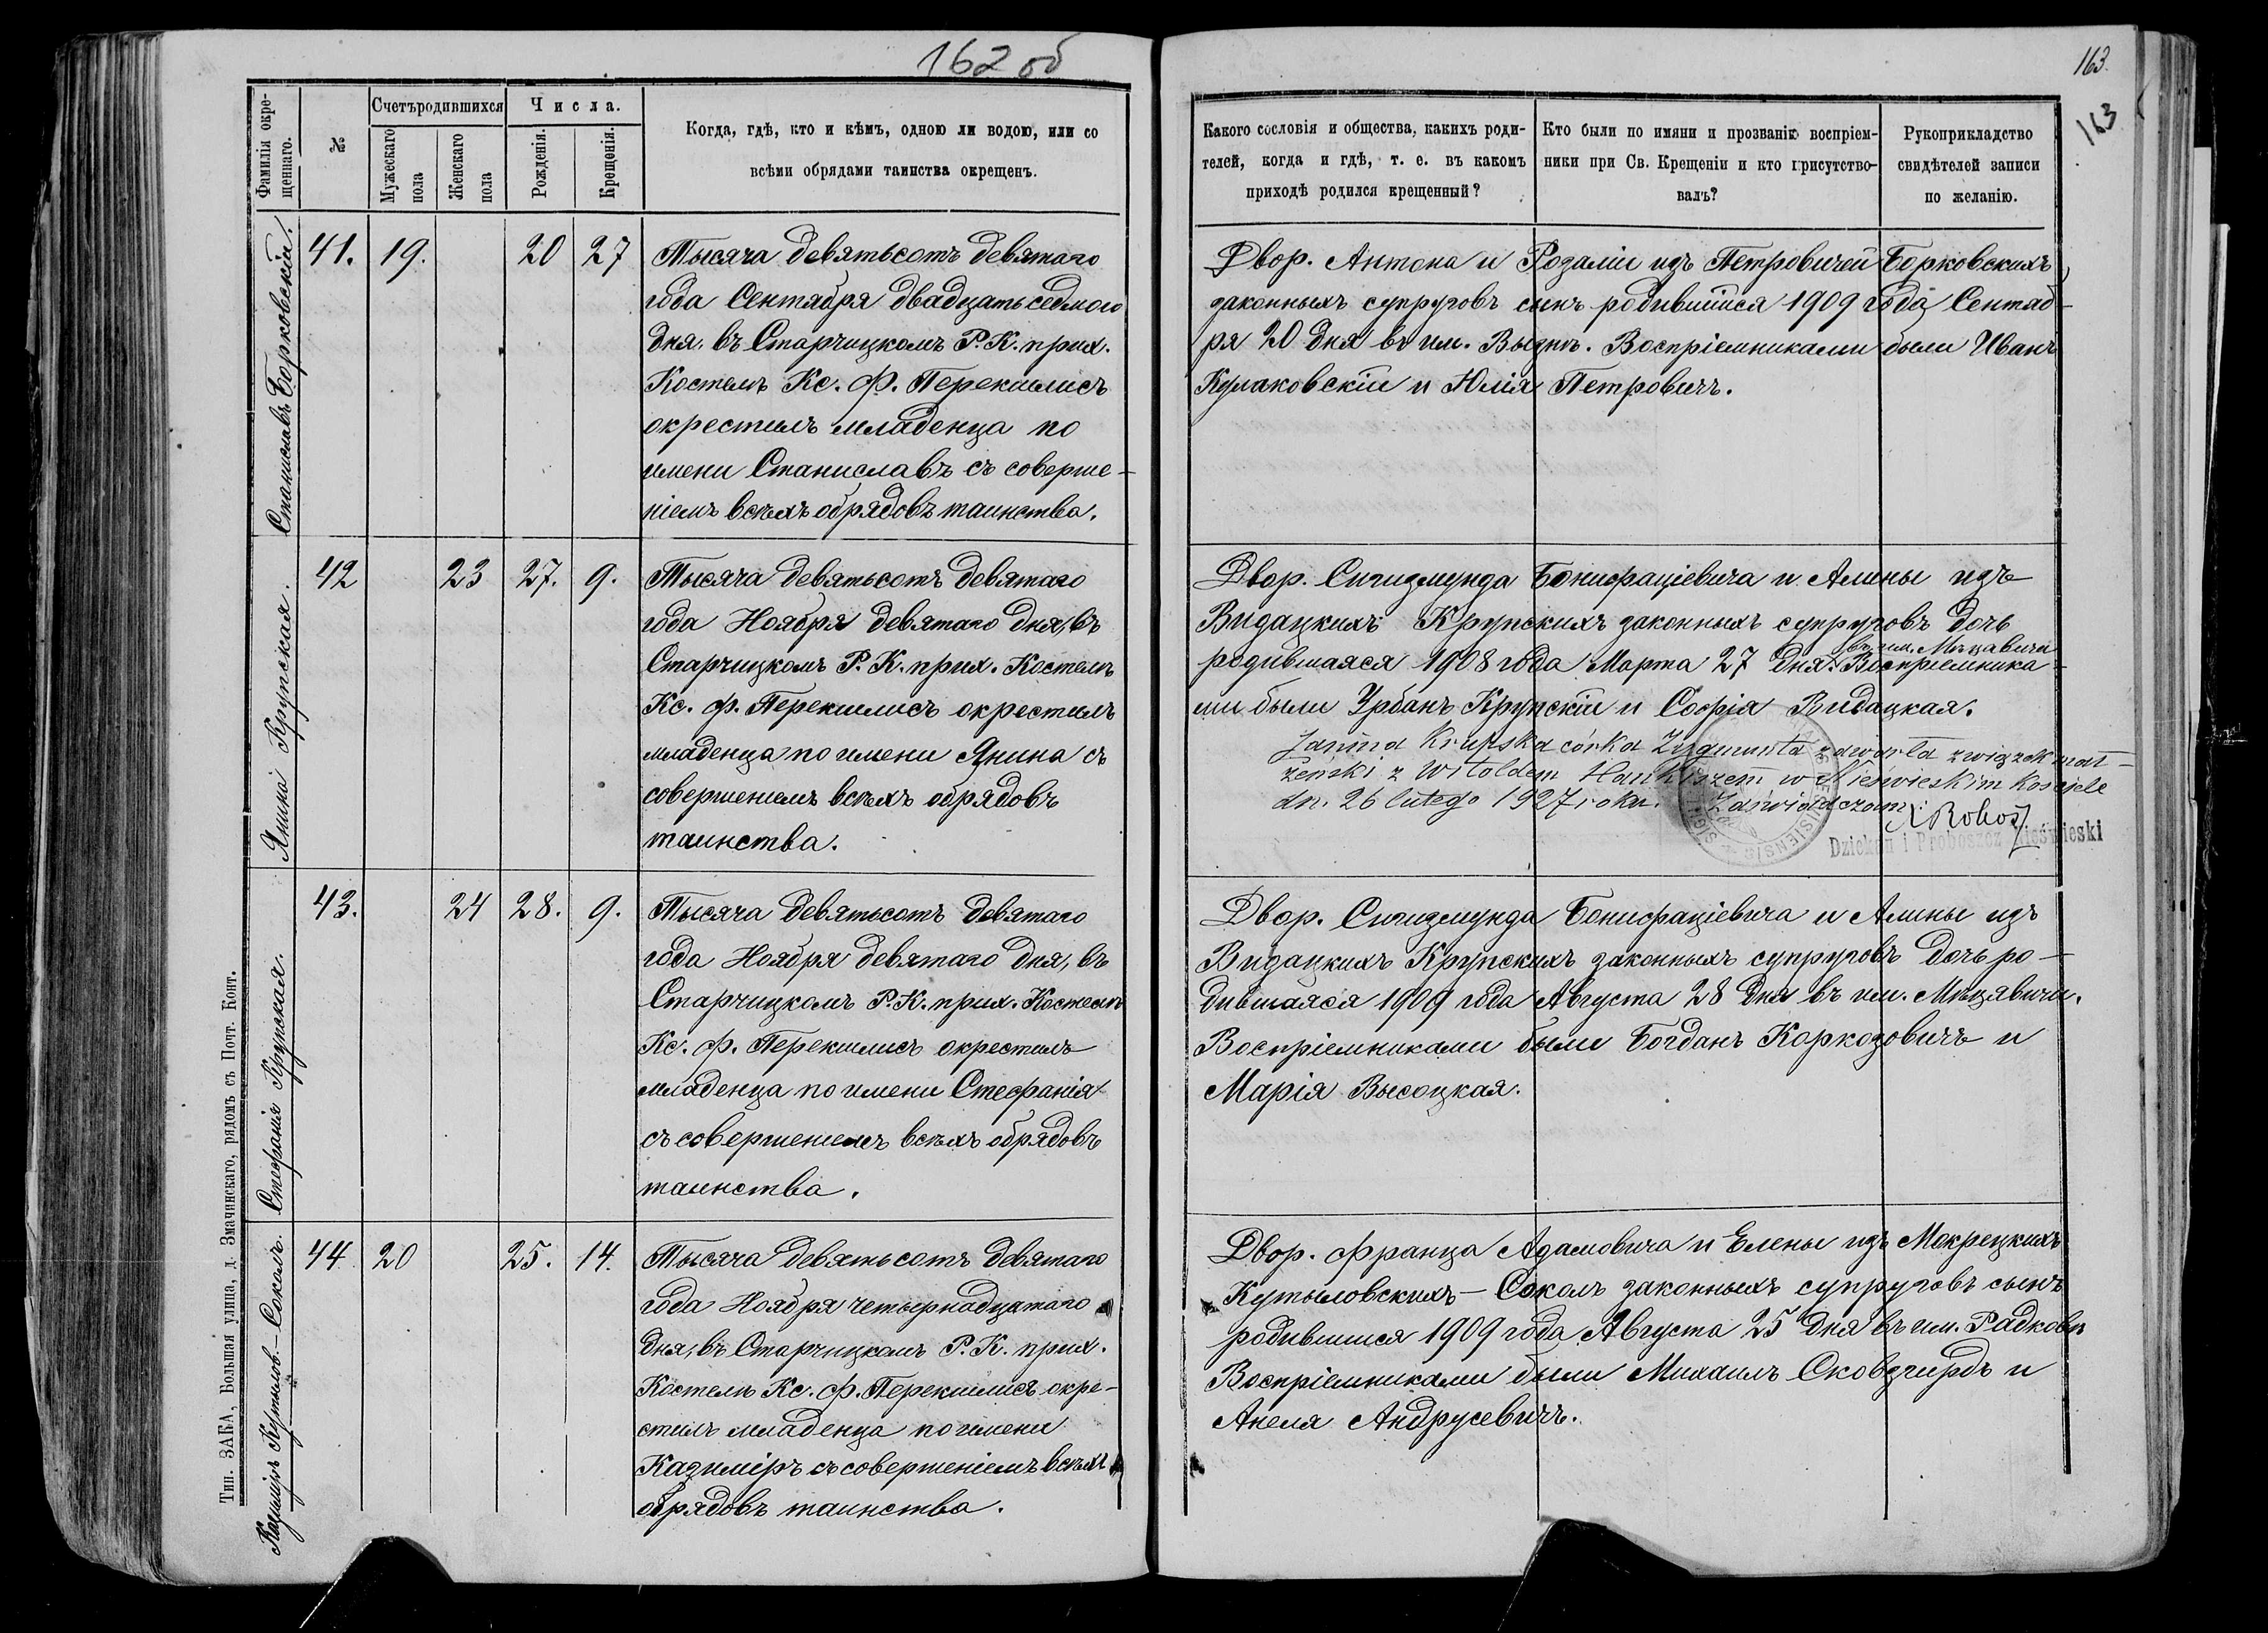 162 об
Фамилія окре-
щеннаго.
№
Счетъ родившихся
Мужескаго
пола
Женскаго
пола
Числа.
Рожденія.
Крещенія.
Когда, гдѣ, кто и кѣмъ, одною ли водою, или со
всѣми обрядами таинства окрещенъ.
Станиславъ Борковскій.
41. 19. 20 27
Тысяча девятьсотъ девятаго
года Сентября двадцать седмого
дня, въ Старчицкомъ Р. К. прих.
Костелѣ Кс. Ф. Перекшлисъ
окрестилъ младенца по
имени Станиславъ съ соверше-
ніемъ всѣхъ обрядовъ таинства.
Янина Крупская.
42 23 27. 9.
Тысяча девятьсотъ девятаго
года Ноября девятаго дня, въ
Старчицкомъ Р. К. прих. Костелѣ
Кс. Ф. Перекшлисъ окрестилъ
младенца по имени Янина съ
совершеніемъ всѣхъ обрядовъ
таинства.
Стефанія Крупская.
43. 24 28. 9.
Тысяча девятьсотъ девятаго
года Ноября девятаго дня, въ
Старчицкомъ Р. К. прих. Костелѣ
Кс. Ф. Перекшлисъ окрестилъ
младенца по имени Стефанія
съ совершеніемъ всѣхъ обрядовъ
таинства.
Казиміръ Кутылов.-Соколъ.
44 20 25. 14.
Тысяча девятьсотъ девятаго
года Ноября четырнадцатаго
дня, въ Старчицкомъ Р. К. прих.
Костелѣ Кс. Ф. Перекшлисъ окре-
стилъ младенца по имени
Казиміръ съ совершеніемъ всѣхъ
обрядовъ таинства.
Тип. ЗАКА, Большая улица, д. Змачинскаго, рядомъ съ Почт. Конт.
163.
163
Какого сословія и общества, какихъ роди-
телей, когда и гдѣ, т. е. въ какомъ
приходѣ родился крещенный?
Кто были по имяни и прозванію воспріем-
ники при Св. Крещеніи и кто присутство-
валъ?
Рукоприкладство
свидѣтелей записи
по желанію.
Двор. Антона и Розаліи изъ Петровичей Борковскихъ,
законныхъ супруговъ сынъ родившійся 1909 года Сентяб-
ря 20 дня въ им. Воспріемниками были Иванъ
Кулаковскій и Юлія Петровичъ.
Двор. Сигизмунда Бонифаціевича и Алины изъ
Видацкихъ Крупскихъ законныхъ супруговъ дочь
въ им. Мыцявичи
родившаяся 1908 года Марта 27 дня. Воспріемника-
ми были Урбанъ Крупскій и Софія Видацкая.
Janina Krupska córka Zygmunta zawarła związek mał-
żeński z Witoldem w Nieświeskim Kościele
dn. 26 lutego 1927 roku. Zaświadczam:
Dziekan i Proboszcz Nieświeski
Двор. Сигизмунда Бонифаціевича и Алины изъ
Видацкихъ Крупскихъ законныхъ супруговъ дочь ро-
дившаяся 1909 года Августа 28 дня въ им. Мыцявичи.
Воспріемниками были Богданъ Каркозовичъ и
Марія Высоцкая.
Двор. Франца Адамовича и Елены изъ Мокрецкихъ
Кутыловскихъ-Соколъ законныхъ супруговъ сынъ
родившійся 1909 года Августа 25 дня въ им. Радково
Воспріемниками были Михаилъ Сковзгирдъ и
Анеля Андрусевичъ.